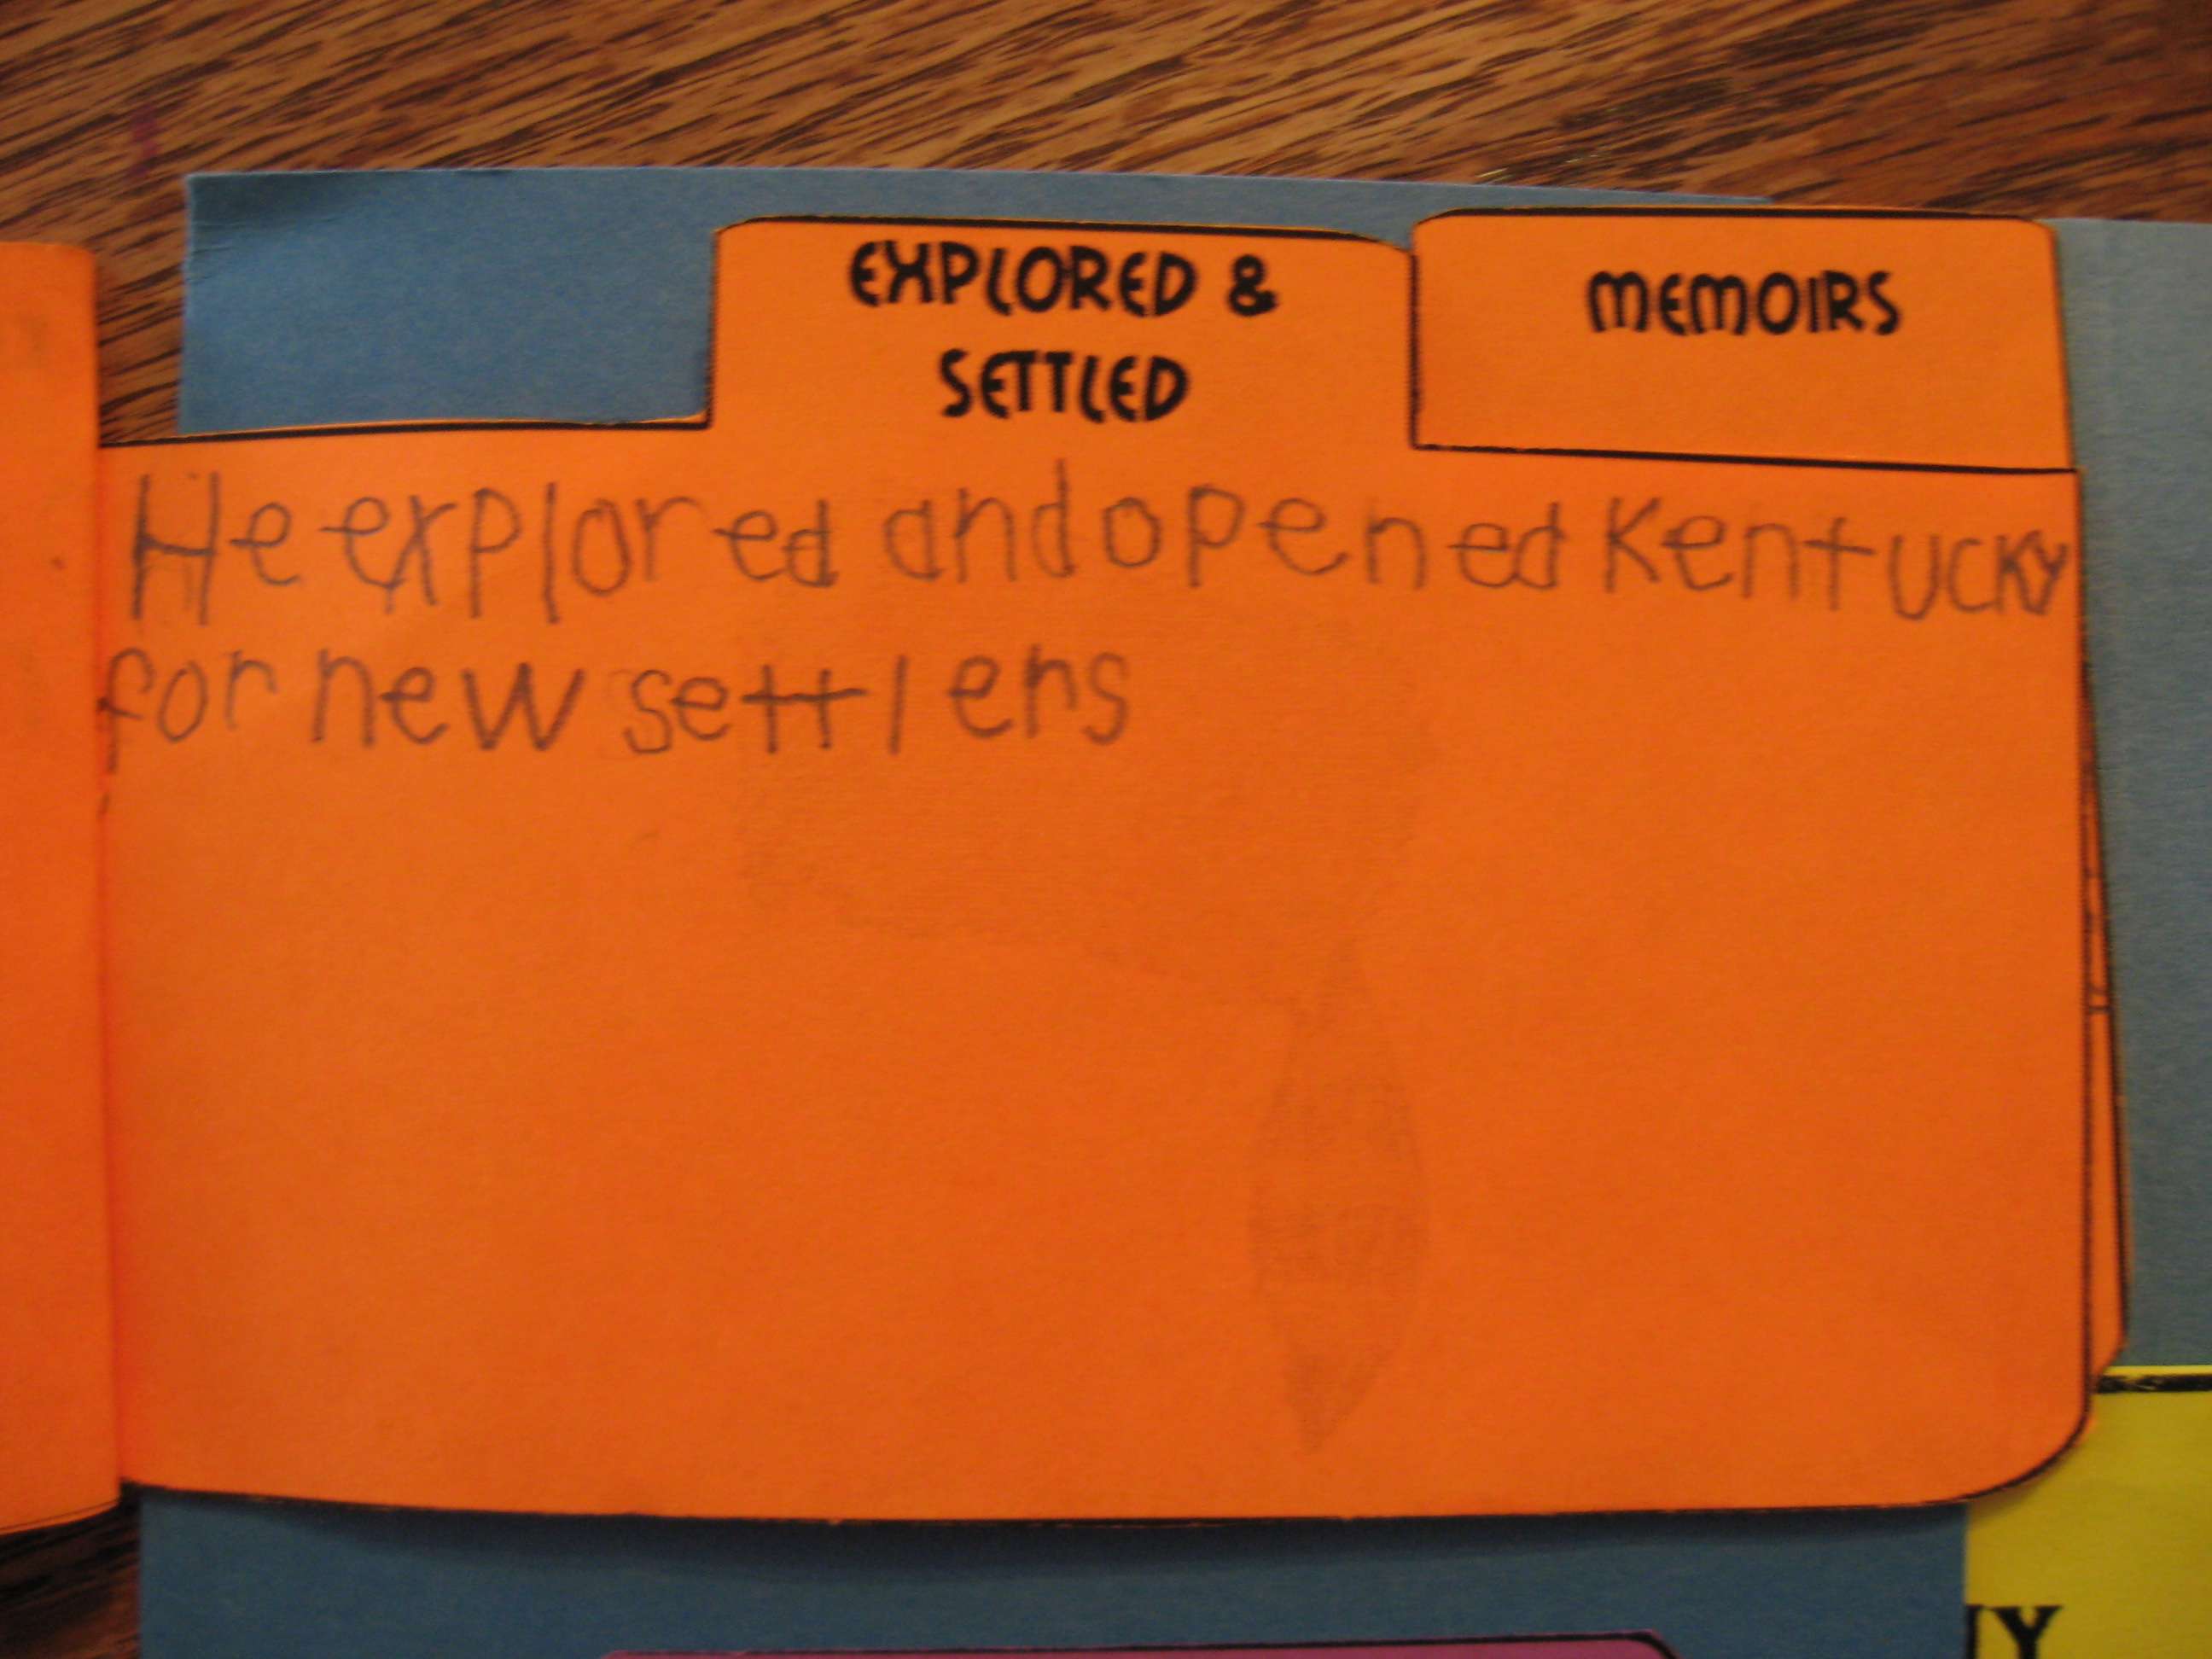 EXPLORED &
SETTLED
MEMOIRS
He explored and opened Kentucky
for new settlers